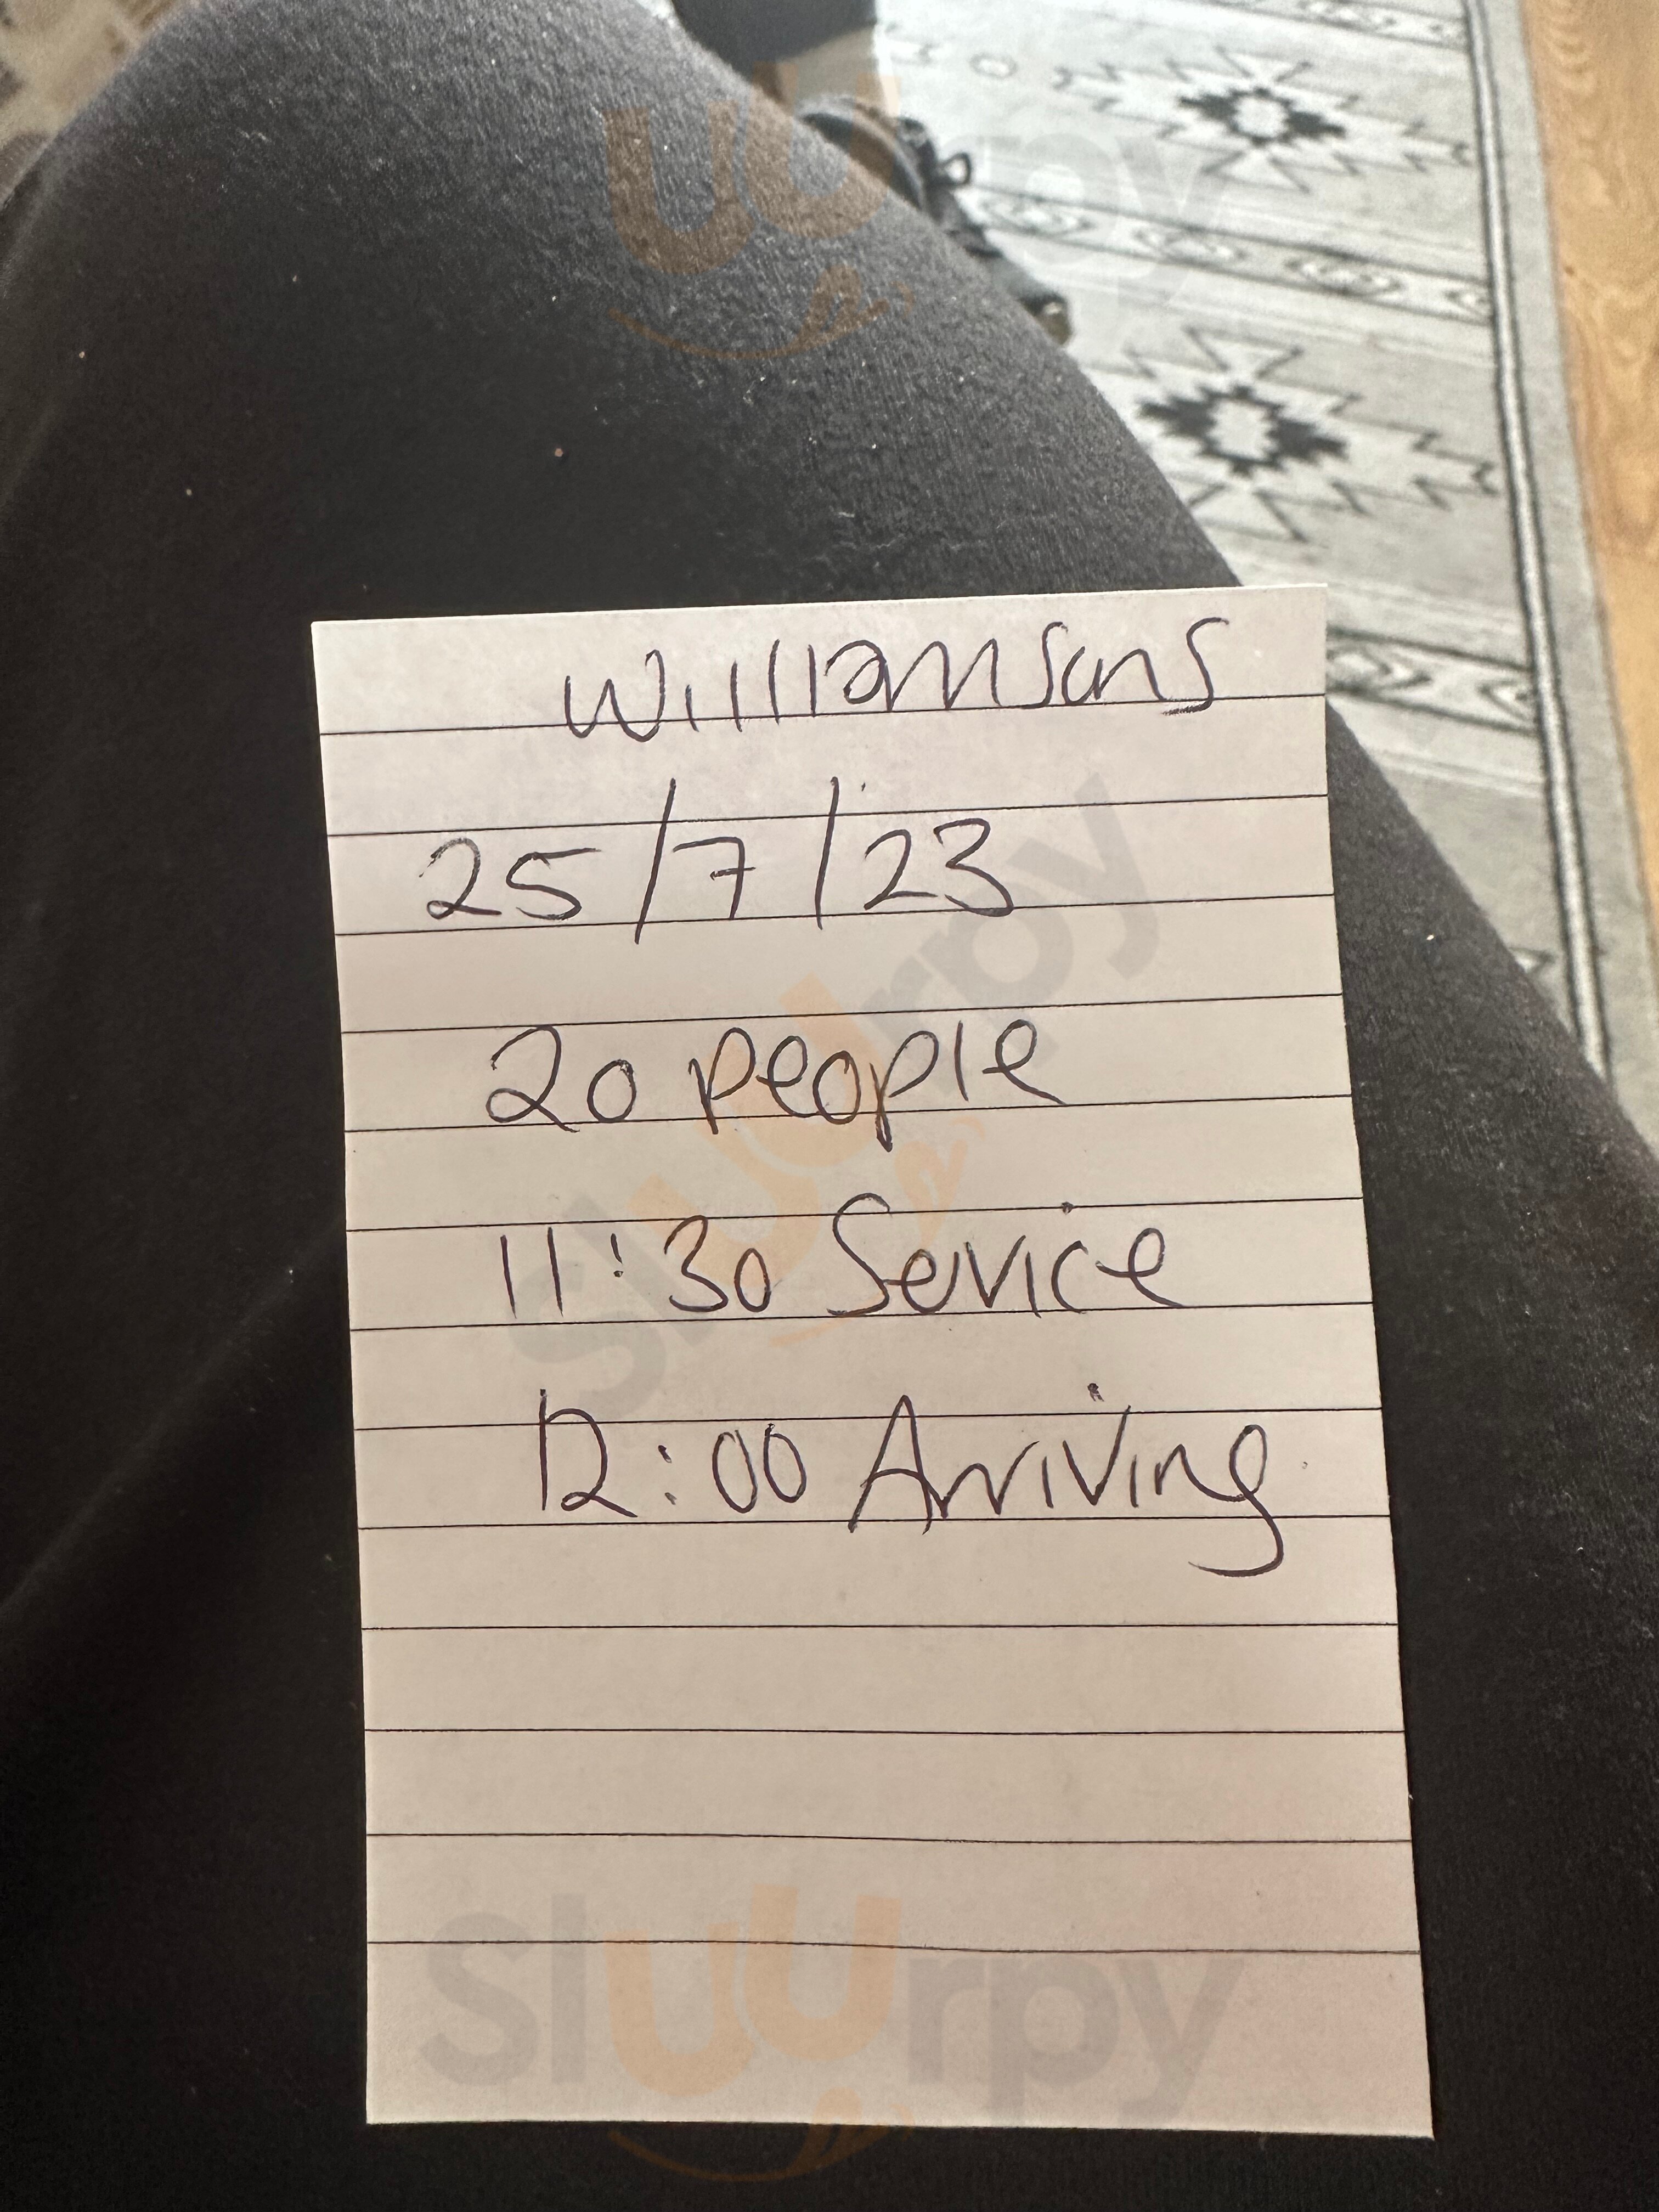 uurpy
Williamsons
25/7/23
20 people
11:30 Service
12:00 Arriving
sluurpy
sluurpy